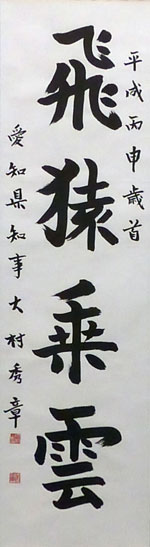 平成丙申歳首
飛猿乗雲
愛知県知事大村秀章